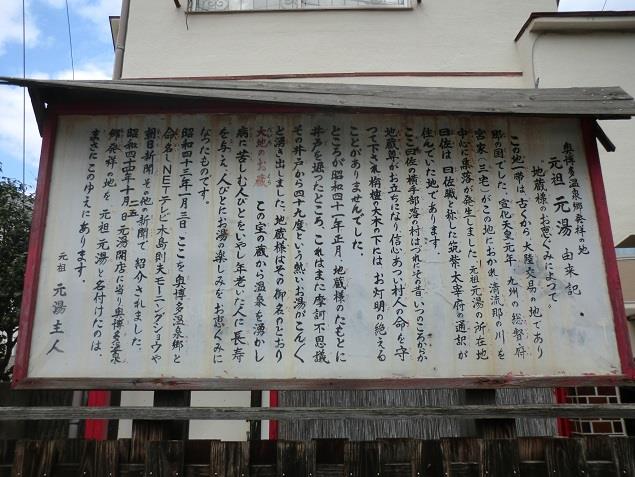 奥博多温泉郷発祥の地
元祖 元湯 由来記
"地蔵様のお恵ぐみによつて"
この地一帯は古くから大陸交易の地であり
那の国でした。宣化天皇元年 九州の総督府
宮家(三宅)がこの地におかれ 清流那の川を
中心に集落が発生しました。元祖元湯の所在地
曰佐は曰佐職と称した筑紫太宰府の通訳が
住んでいた地であります。
こゝ曰佐の横手部落の村はづれにその昔いつのころからか
地蔵尊がお立ちになり信心あつい村人の命を守
つて下され栴檀大木の下には お灯明の絶える
ことがありませんでした。
ところが昭和四十一年正月、地蔵様のたもとに
井戸を追つたところ、これはまた摩訶不思議
その井戸から四十九度という熱いお湯がこんく
と湧き出しました。地蔵様はその御名のとおり
大地のお蔵 この宝の蔵から温泉を湧かし
病に苦しむ人びとをいやし年老いた人に長寿
を与え人びとにお湯の楽しみをお恵ぐみに
なつたものです。
昭和四十三年一月三日 ここを奥博多温泉郷と
命名しNETテレビ木島則夫モーニングショウや
朝日新聞その他の新聞で 紹介されました。
昭和四十四年十月二五日 元湯開店に当り奥博多温泉
郷発祥の地を 元祖 元湯と名付けたのは、
まさにこのゆえにあります。
元祖 元湯主人